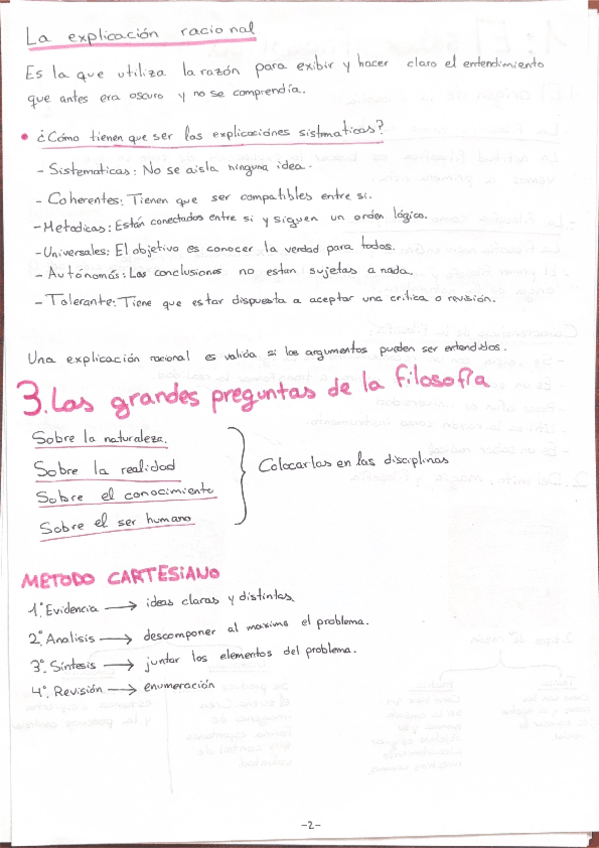 La explicación racional
Es la que utiliza la razón para exibir y hacer claro el entendimiento
que antes era oscuro y no se comprendía.
• ¿Cómo tienen que ser las explicaciónes sistmaticas?
- Sistematicas: No se aisla ninguna idea.
- Coherentes: Tienen que ser compatibles entre si.
- Metodicas: Están conectados entre si y siguen un orden lógico.
- Universales: El objetivo es conocer la verdad para todos.
- Autónomás: Las conclusiones no estan sujetas a nada.
- Tolerante: Tiene que estar dispuesta a aceptar una critica o revisión.
Una explicación racional es valida si los argumentos pueden ser entendidos.
3. Las grandes preguntas de la filosofía
Sobre la naturaleza.
Sobre la realidad
Sobre el conocimiento
Sobre el ser humano
Colocarlas en las disciplinas
METODO CARTESIANO
1º. Evidencia → ideas claras y distintas.
2º. Analisis → descomponer al maximo el problema.
3º. Síntesis → juntar los elementos del problema.
4º. Revisión → enumeración
-2-